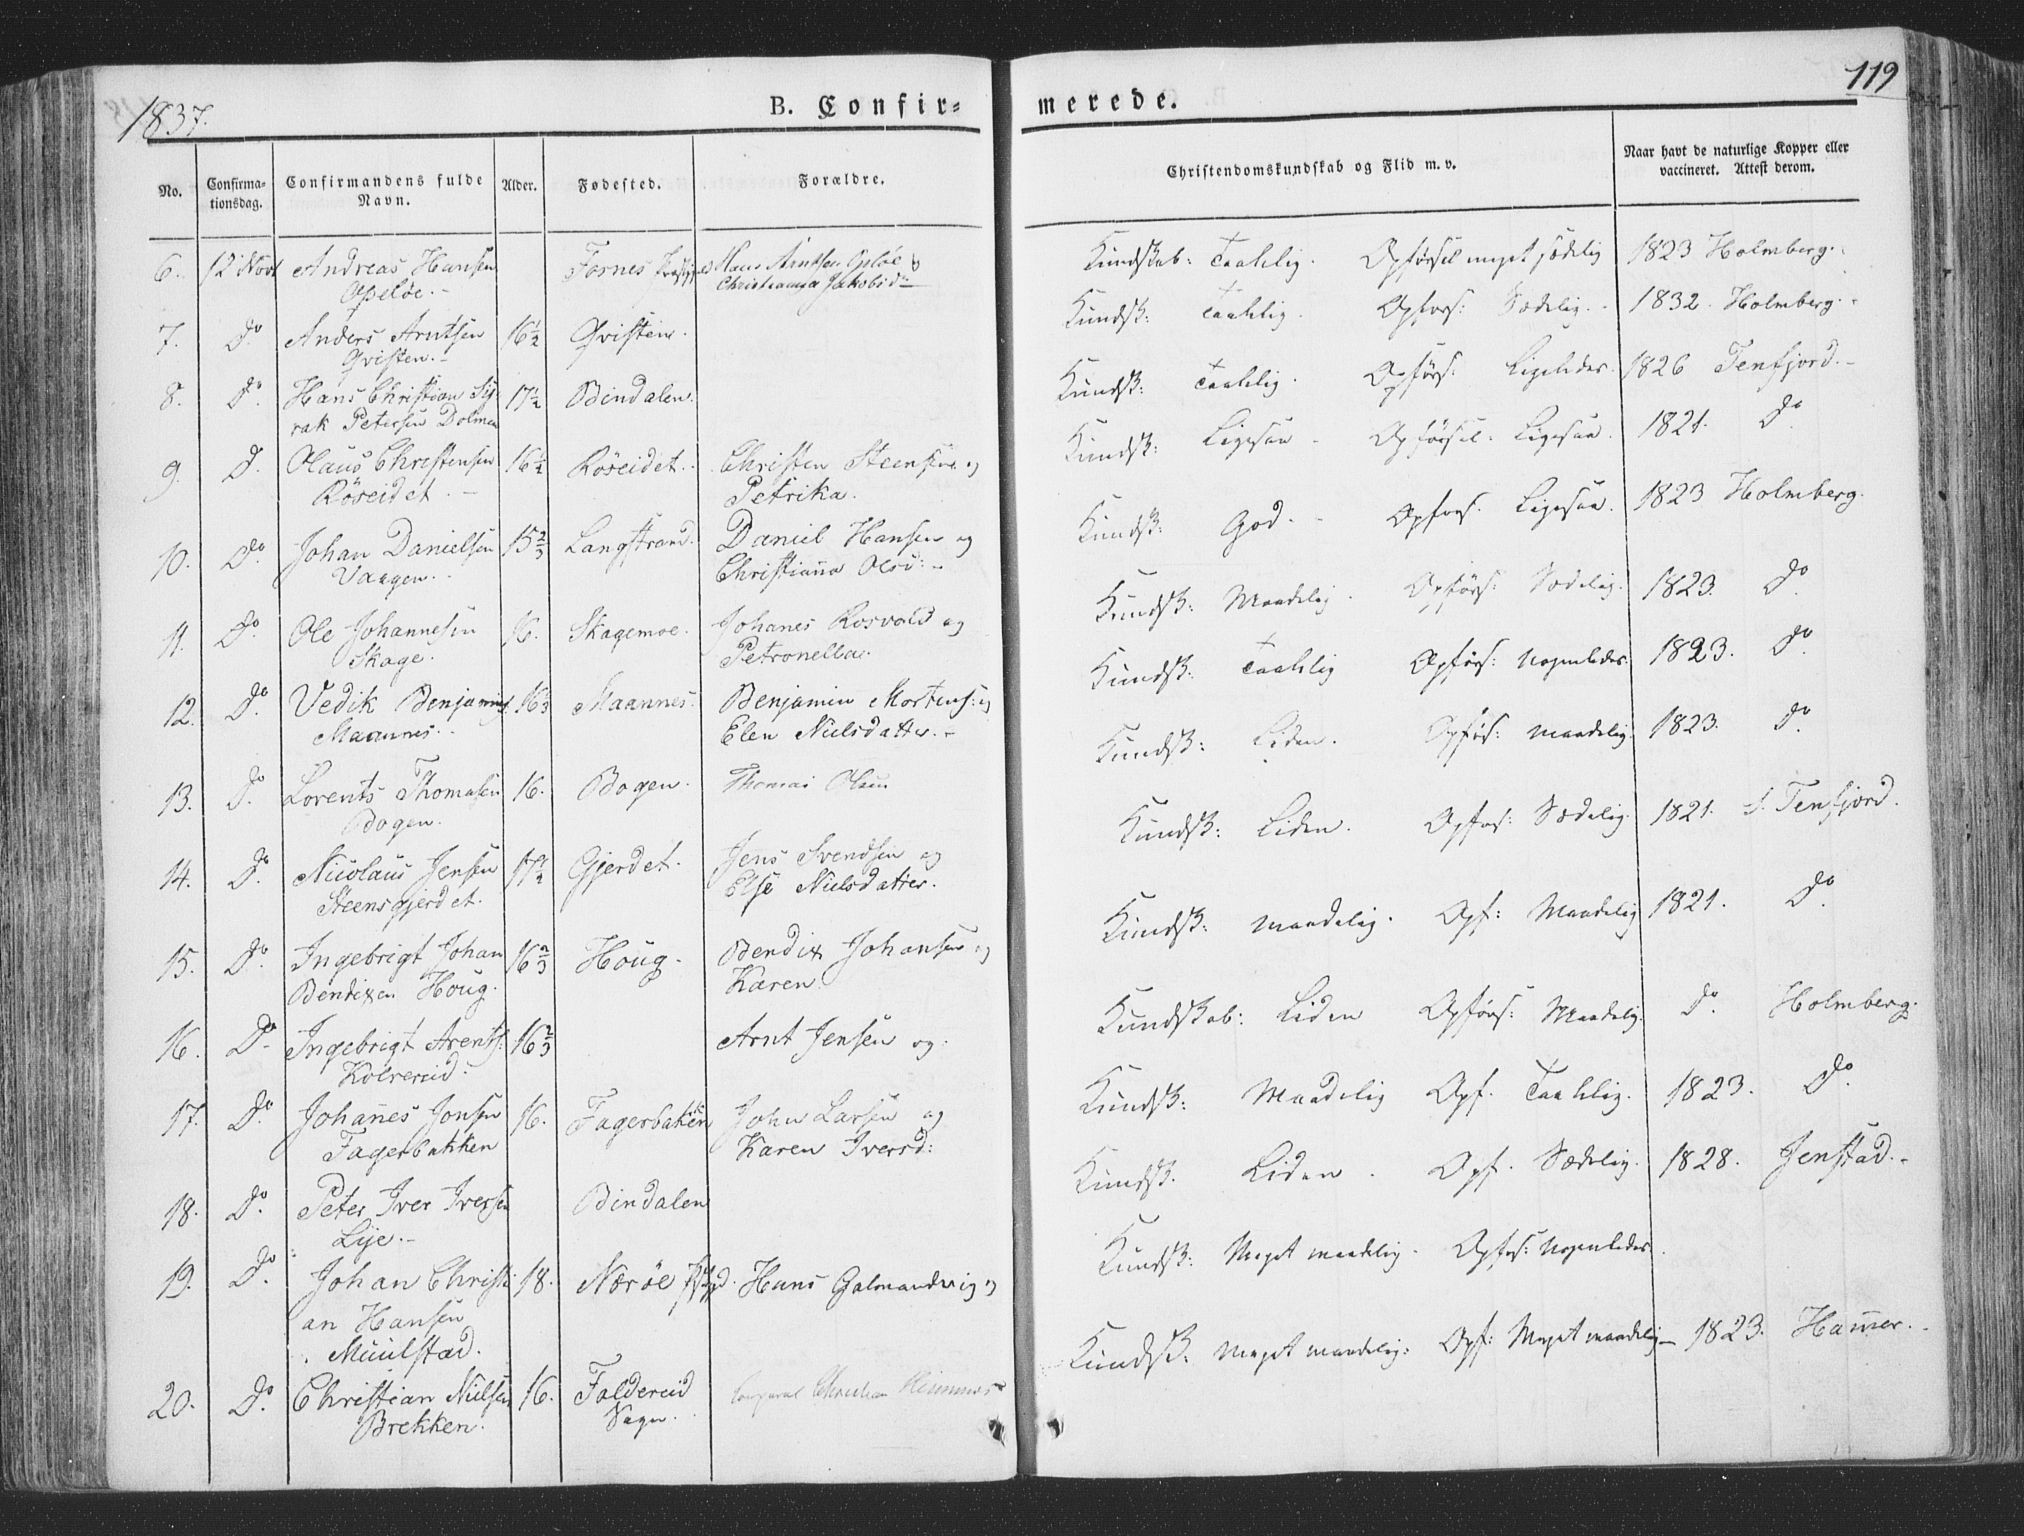 1837.
B. Confir-
merede.
119
No.
Confirma-
tionsdag.
Confirmandens fulde
Navn.
Alder.
Fødested.
Forældre.
Christendomskundskab og Flid m. v.
Naar havt de naturlige Kopper eller
vaccineret. Attest derom.
6. 12 Novb Andreas Hansen Fornes Hans Arntsen Opløe
Opeløe. Christianna Jakobsd:
Kundskab: Taalelig. Opførsel meget sædelig 1823 Holmberg.
7. Do Anders Arntsen 16½ Qvisten.
Qvisten.
Kundsk: Taalelig. Opførs: Sædelig. 1832. Holmberg.
8. Do. Hans Christian Sy- 17½ Bindalen.
rak Petersen Dolmen
Kundsk: Taalelig. Opførs: Ligeledes. 1826 Tenfjord.
9. D. Olaus Christensen 16½ Röseidet. Christen Steensen og
Röseidet. Petrika.
Kundsk: Ligesaa Opførsel. Ligesaa. 1821. Do
10. Do. Johan Danielsen 15⅔ Langstrand. Daniel Hansen og
Vaagen. Christiana Olsd:
Kundsk: God. Opførs. Ligesaa. 1823 Holmberg.
11. Do. Ole Johannesen 16. Skagemoe. Johanes Rosvold og
Skage. Petronella.
Kundsk: Maadelig. Opførs: Sædelig. 1823. Do
12. Do. Vedik Benjamins: 16⅓ Maannes. Benjamin Mortens: og
Maannes. Elen Nielsdatter.
Kundsk: Taalelig Opførs: Nogenledes. 1823. Do
13. D. Lorents Thomasen 16. Bogen. Thomas Olsen
Bogen.
Kundsk: Liden. Opførs: maadelig. 1823. Do
14. Do. Nicolaus Jensen 17½ Gjerdet. Jens Svendsen og
Steensgjerdet. Else Nielsdatter.
Kundsk: Liden. Opførs: Sædelig. 1821. Tenfjord.
15. Do. Ingebrigt Johan 16⅔ Houg. Bendix Johansen og
Bendixen Houg. Karen
Kundsk: maadelig. Opf: Maadelig 1821. Do
16. Do. Ingebrigt Arents: 16⅔ Arnt Jensen og.
Kolvereid.
Kundskab: Liden Opførs: Maadelig. Do. Holmberg.
17. Do. Johanes Jonsen 16. Fagerbakken John Larsen og
Fagerbakken Karen Iversd:
Kundsk: Maadelig Opf. Taalelig. 1823. Do
18. Do. Peter Iver Iversen Bindalen
Lije.
Kundsk. Liden. Opf. Sædelig. 1828. Jenstad.
19. Do. Johan Christi- 18. Nærøe Hans Galmandvig og
an Hansen
Muulstad.
Kundsk: Meget maadelig. Opførs: Nogenledes.
20. Do. Christian Nielsen 16. Foldereid Corporal Christian
Brekken. Sogn.
Kundsk: Meget maadelig: Opf: Meget maadelig 1823. Hamer.